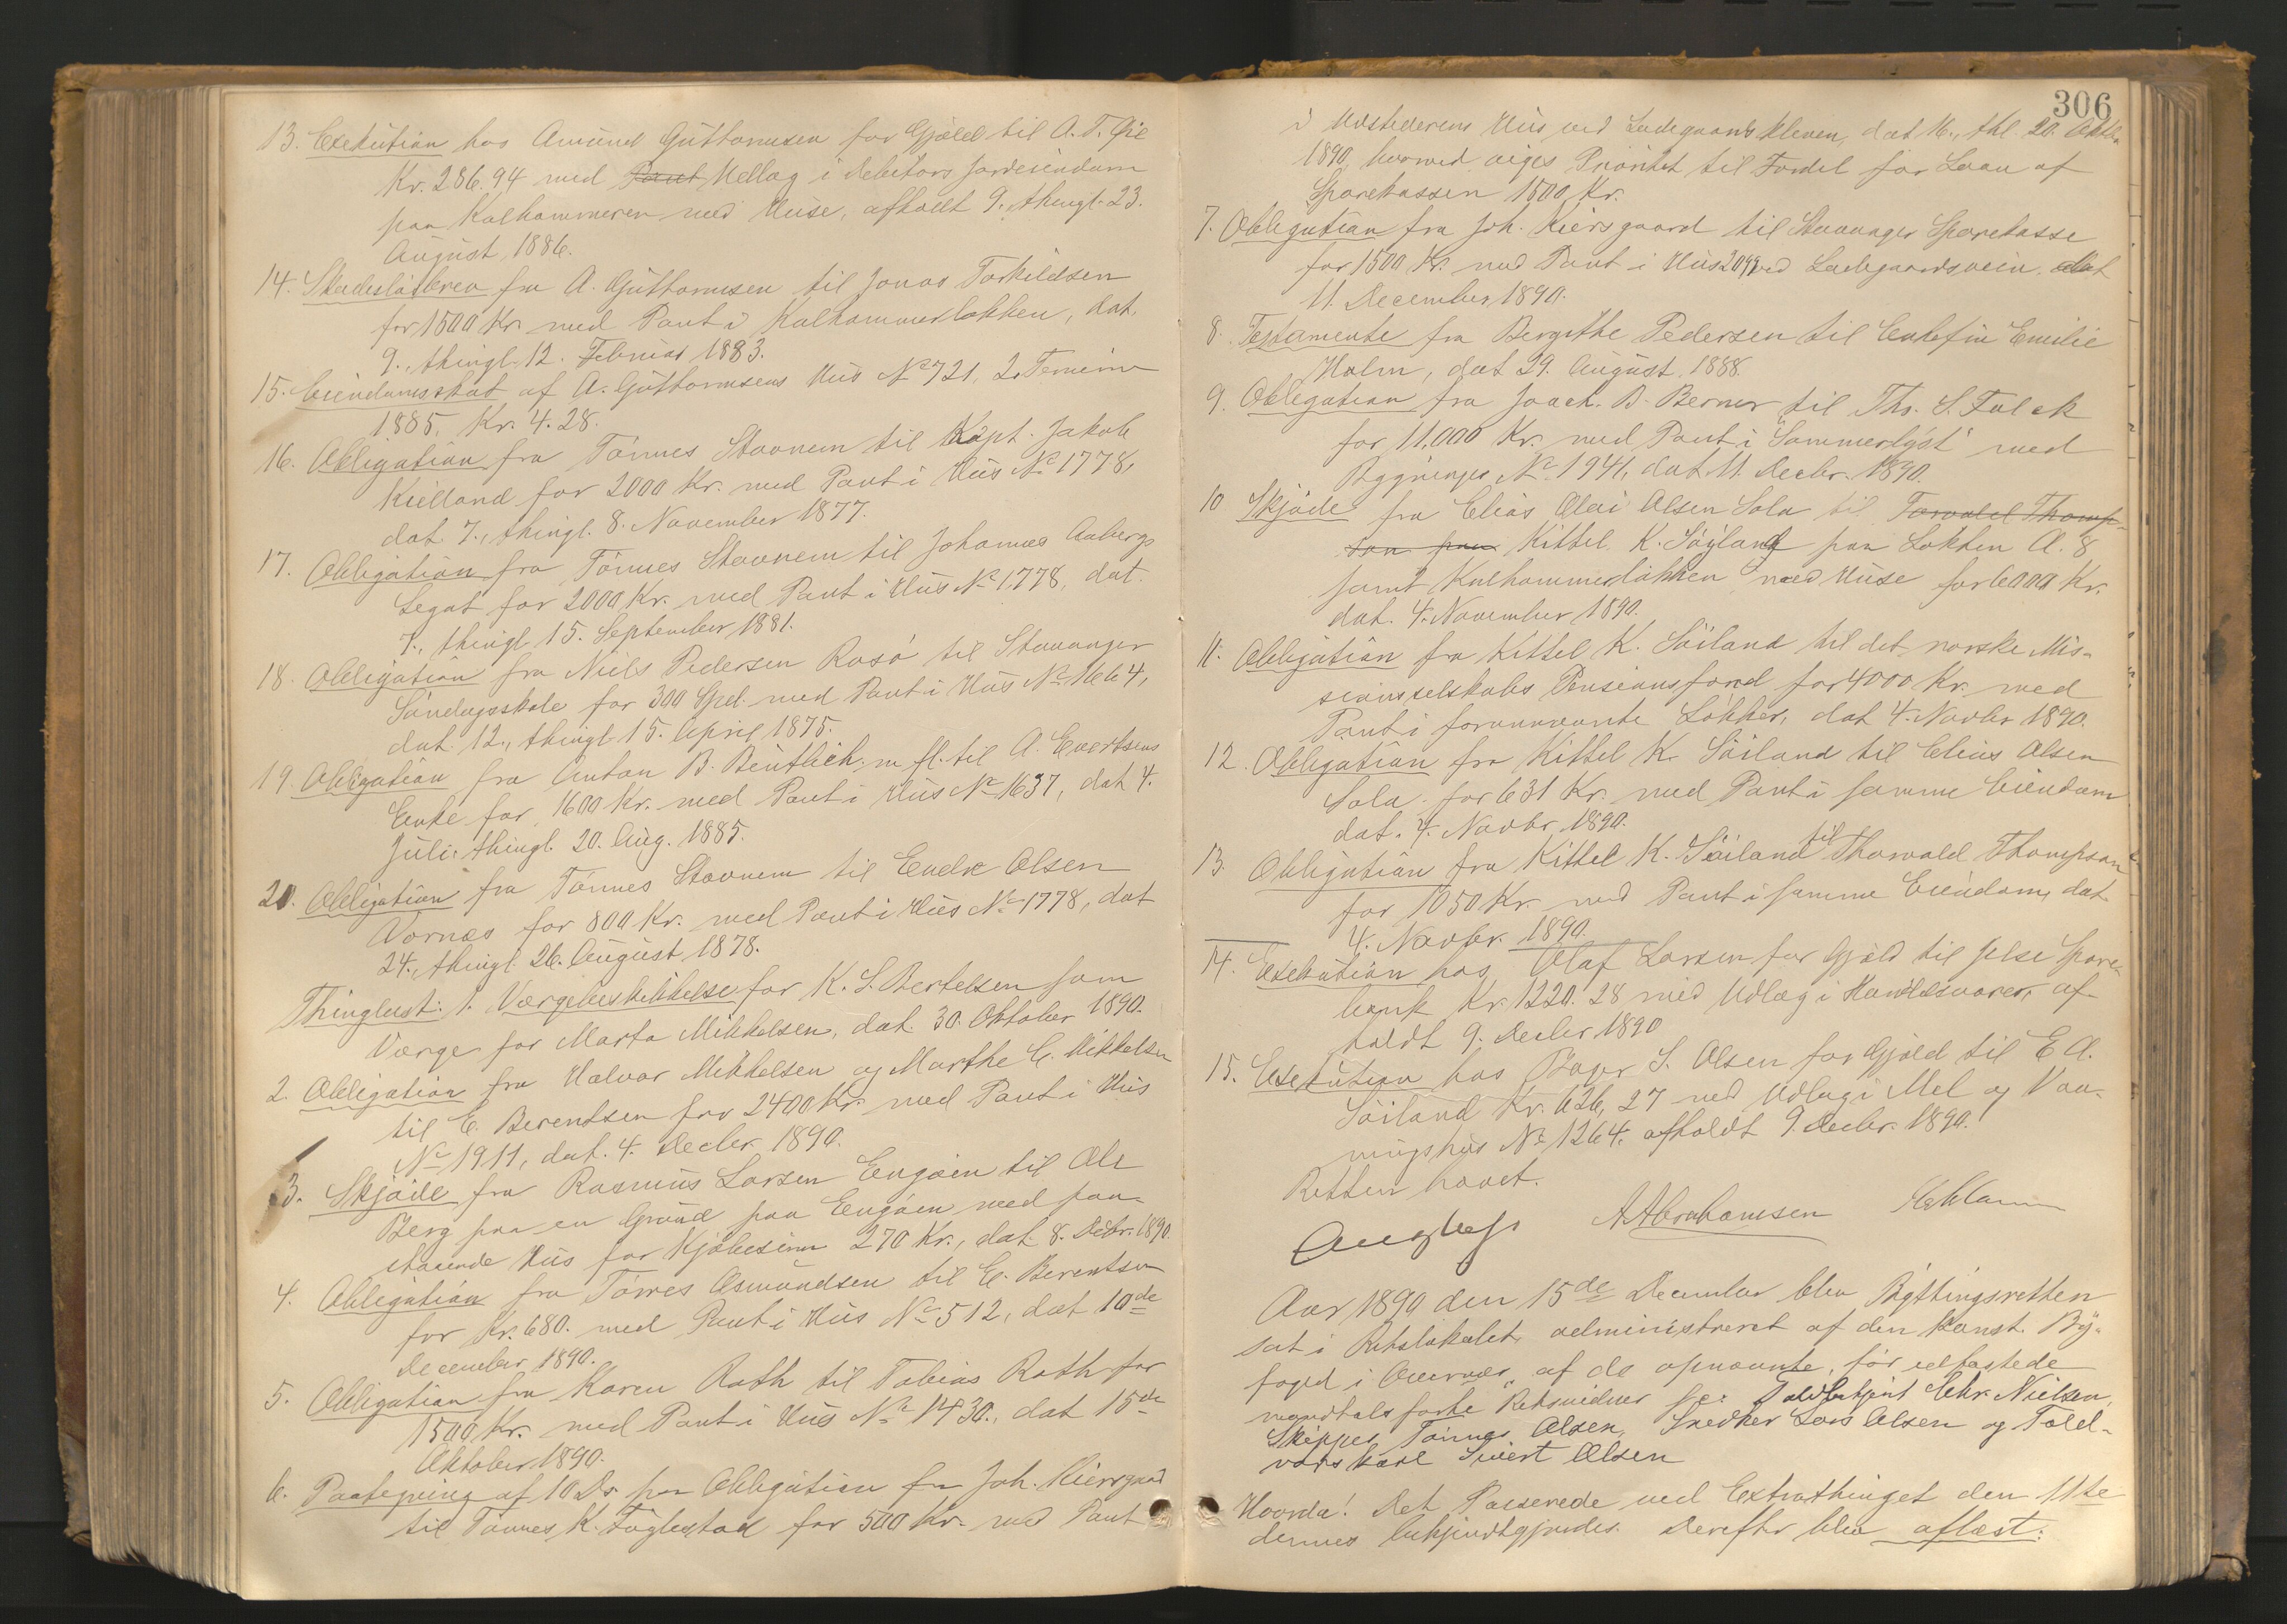 13. Exekution hos Amund Guttormsen for Gjæld til A. T. Øie
Kr. 286.94 med Pant Udlæg i Debitors Jordeiendom
paa Kalhammeren med Huse, afholdt 9., thingl. 23.
August 1886.
14. Skadesløsbrev fra A. Guttormsen til Jonas Torkildsen
for 1500 Kr. med Pant i Kalhammerløkken, dat.
9., thingl. 12. Februar 1883.
15. Eiendomsskat af A. Guttormsens Hus No 721, 2. Termin
1885, Kr. 4.28.
16. Obligation fra Tønnes Stavnem til Kapt. Jakob
Kielland for 2000 Kr. med Pant i Hus No 1778,
dat. 7., thingl. 8. November 1877.
17. Obligation fra Tønnes Stavnem til Johannes Aabergs
Legat for 2000 Kr. med Pant i Hus No 1778, dat.
7., thingl. 15. September 1881.
18. Obligation fra Niels Pedersen Rosø til Stavanger
Søndagsskole for 300 Spd. med Pant i Hus No 1664,
dat. 12., thingl. 15. April 1875.
19. Obligation fra Anton B. Bentlich m. fl. til A. Evertsens
Enke for 1600 Kr. med Pant i Hus No 1637, dat. 4.
Juli, thingl. 20. Aug. 1885.
20. Obligation fra Tønnes Stavnem til Endre Olsen
Vornæs for 800 Kr. med Pant i Hus No 1778, dat
24., thingl. 26. August 1878.
Thinglæst: 1. Værgebeskikkelse for K. S. Bertelsen som
Værge for Marta Mikkelsen, dat. 30. Oktober 1890.
2. Obligation fra Halvor Mikkelsen og Marthe E. Mikkelsen
til E. Berentsen for 2400 Kr. med Pant i Hus
No 1911, dat. 4. Decbr. 1890.
3. Skjøde fra Rasmus Larsen Engøen til Ole
Berg paa en Grund paa Engøen med paa-
staaende Hus for Kjøbesum 270 Kr., dat. 8. Decbr. 1890.
4. Obligation fra Tørres Osmundsen til E. Berentsen
for Kr. 680. med Pant i Hus No 512, dat 10de
December 1890.
5. Obligation fra Karen Roth til Tobias Roth for
1500 Kr. med Pant i Hus No 1430., dat 15de
Oktober 1890.
6. Paategning af 10 Ds. paa Obligation fra Joh. Kiersgaard
til Tønnes K. Fuglestad for 500 Kr. med Pant
306
i Udstederens Hus ved Ladegaards Kleven, dat 16., thl. 20. Oktbr.
1890, hvorved viges Prioritet til Fordel for Laan af
Sparekassen 1500 Kr.
7. Obligation fra Joh. Kiersgaard til Stavanger Sparekasse
for 1500 Kr. med Pant i Hus 2099 ved Ladegaardsvein. dat
11. December 1890.
8. Testamente fra Bergithe Pedersen til Enkefru Emilie
Holm, dat 29. August 1888.
9. Obligation fra Joach. B. Berner til Ths. S. Falck
for 11,000 Kr. med Pant i "Sommerlyst" med
Bygninger No 1941, dat. 11. Decbr. 1890.
10 Skjøde fra Elias Olai Olsen Sola til Torvald Thomp-
son paa Kittel K. Søyland paa Løkken A. 8
samt Kalhammerløkken med Huse for 6000 Kr.
dat. 4. November 1890.
11. Obligation fra Kittel K. Søiland til det norske Mis-
sionsselskabs Pensionsfond for 4000 Kr. med
Pant i forannævnte Løkker, dat 4. Novbr 1890.
12. Obligation fra Kittel K. Søiland til Elias Olsen
Sola for 631 Kr. med Pant i samme Eiendom
dat. 4. Novbr. 1890.
13. Obligation fra Kittel K. Søiland til Thorvald Thompson
for 1050 Kr. med Pant i samme Eiendom, dat.
4. Novbr. 1890.
14. Exekution hos Olaf Larsen for Gjæld til Jelse Spare-
bank Kr. 1220.28 med Udlæg i Handelsvarer, af-
holdt 9. Decbr 1890
15. Exekution hos Bager S. Olsen for Gjæld til E A.
Søiland Kr. 626,27 med Udlæg i Mel og Vaa-
ningshus No 1264. afholdt 9. Decbr. 1890.
Retten hævet.
A Abrahamsen
Aar 1890 den 15de December blev Bythingsretten
sat i Retslokalet administreret af den konst. By-
foged i Overvær af de opnævnte, før edfæstede
mandtalsførte Retsvidner se: Toldbetjent Chr. Nielsen,
Skipper Tønnes Olsen, Snedker Lars Olsen og Told-
vors karl Sivert Olsen
Hvorda! Det Passerede ved Extrathinget den 11te
dennes bekjendtgjordes. Derefter blev aflæst: